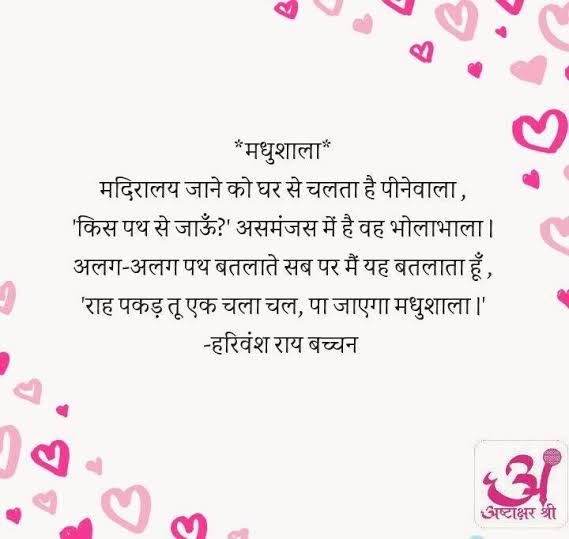 *मधुशाला*
मदिरालय जाने को घर से चलता है पीनेवाला ,
'किस पथ से जाऊँ?' असमंजस में है वह भोलाभाला |
अलग-अलग पथ बतलाते सब पर मैं यह बतलाता हूँ ,
'राह पकड़ तू एक चला चल, पा जाएगा मधुशाला |'
-हरिवंश राय बच्चन
अ
अष्टाक्षर श्री